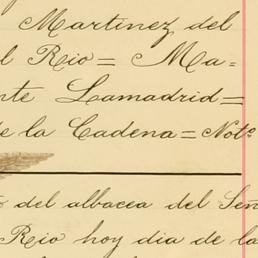 Martinez del
Rio = Ma=
nte Lamadrid=
de la Cadena = Notº
del albacea del Señ
Rio hoy dia de la